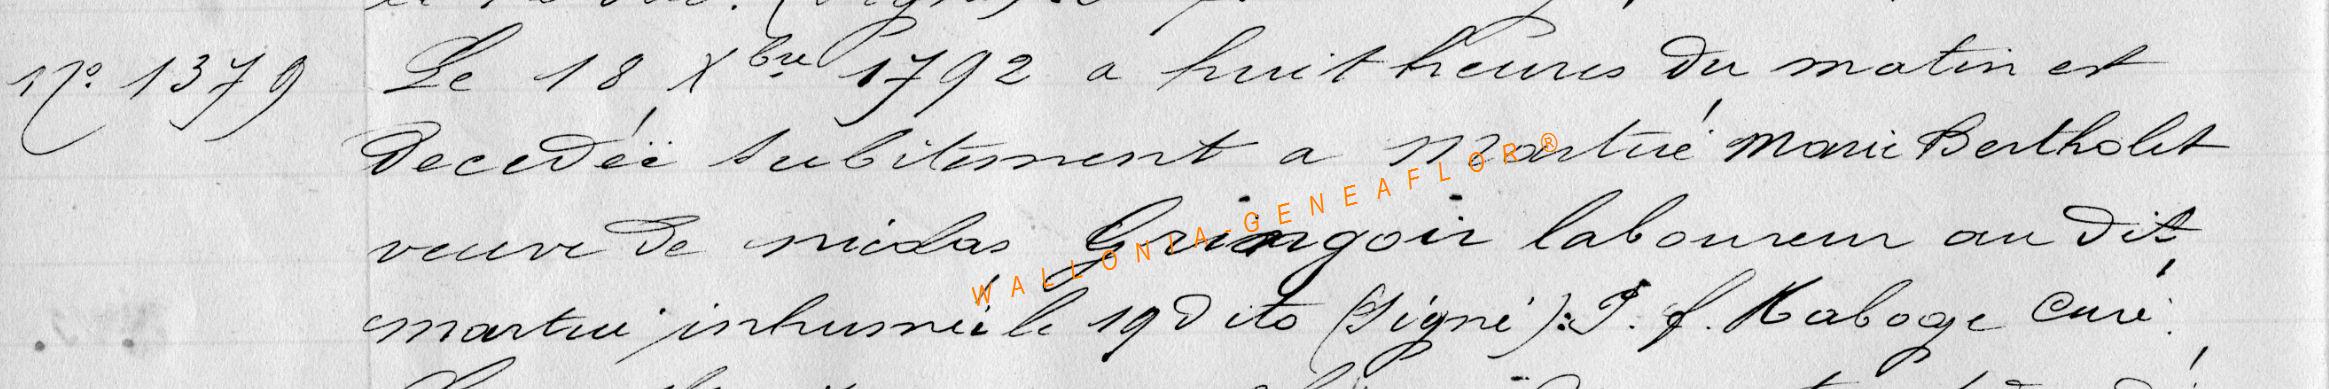 N° 1379 Le 18 Xbre 1792 a huit heures du matin est
Decedéé subitement a Martué Marie Bertholet
veuve de nicolas Gringoir laboureur au dit
martué inhuméé le 19 dito (Signé): J. f. Naboge Curé.
WALLONIA-GENEAFLOR®